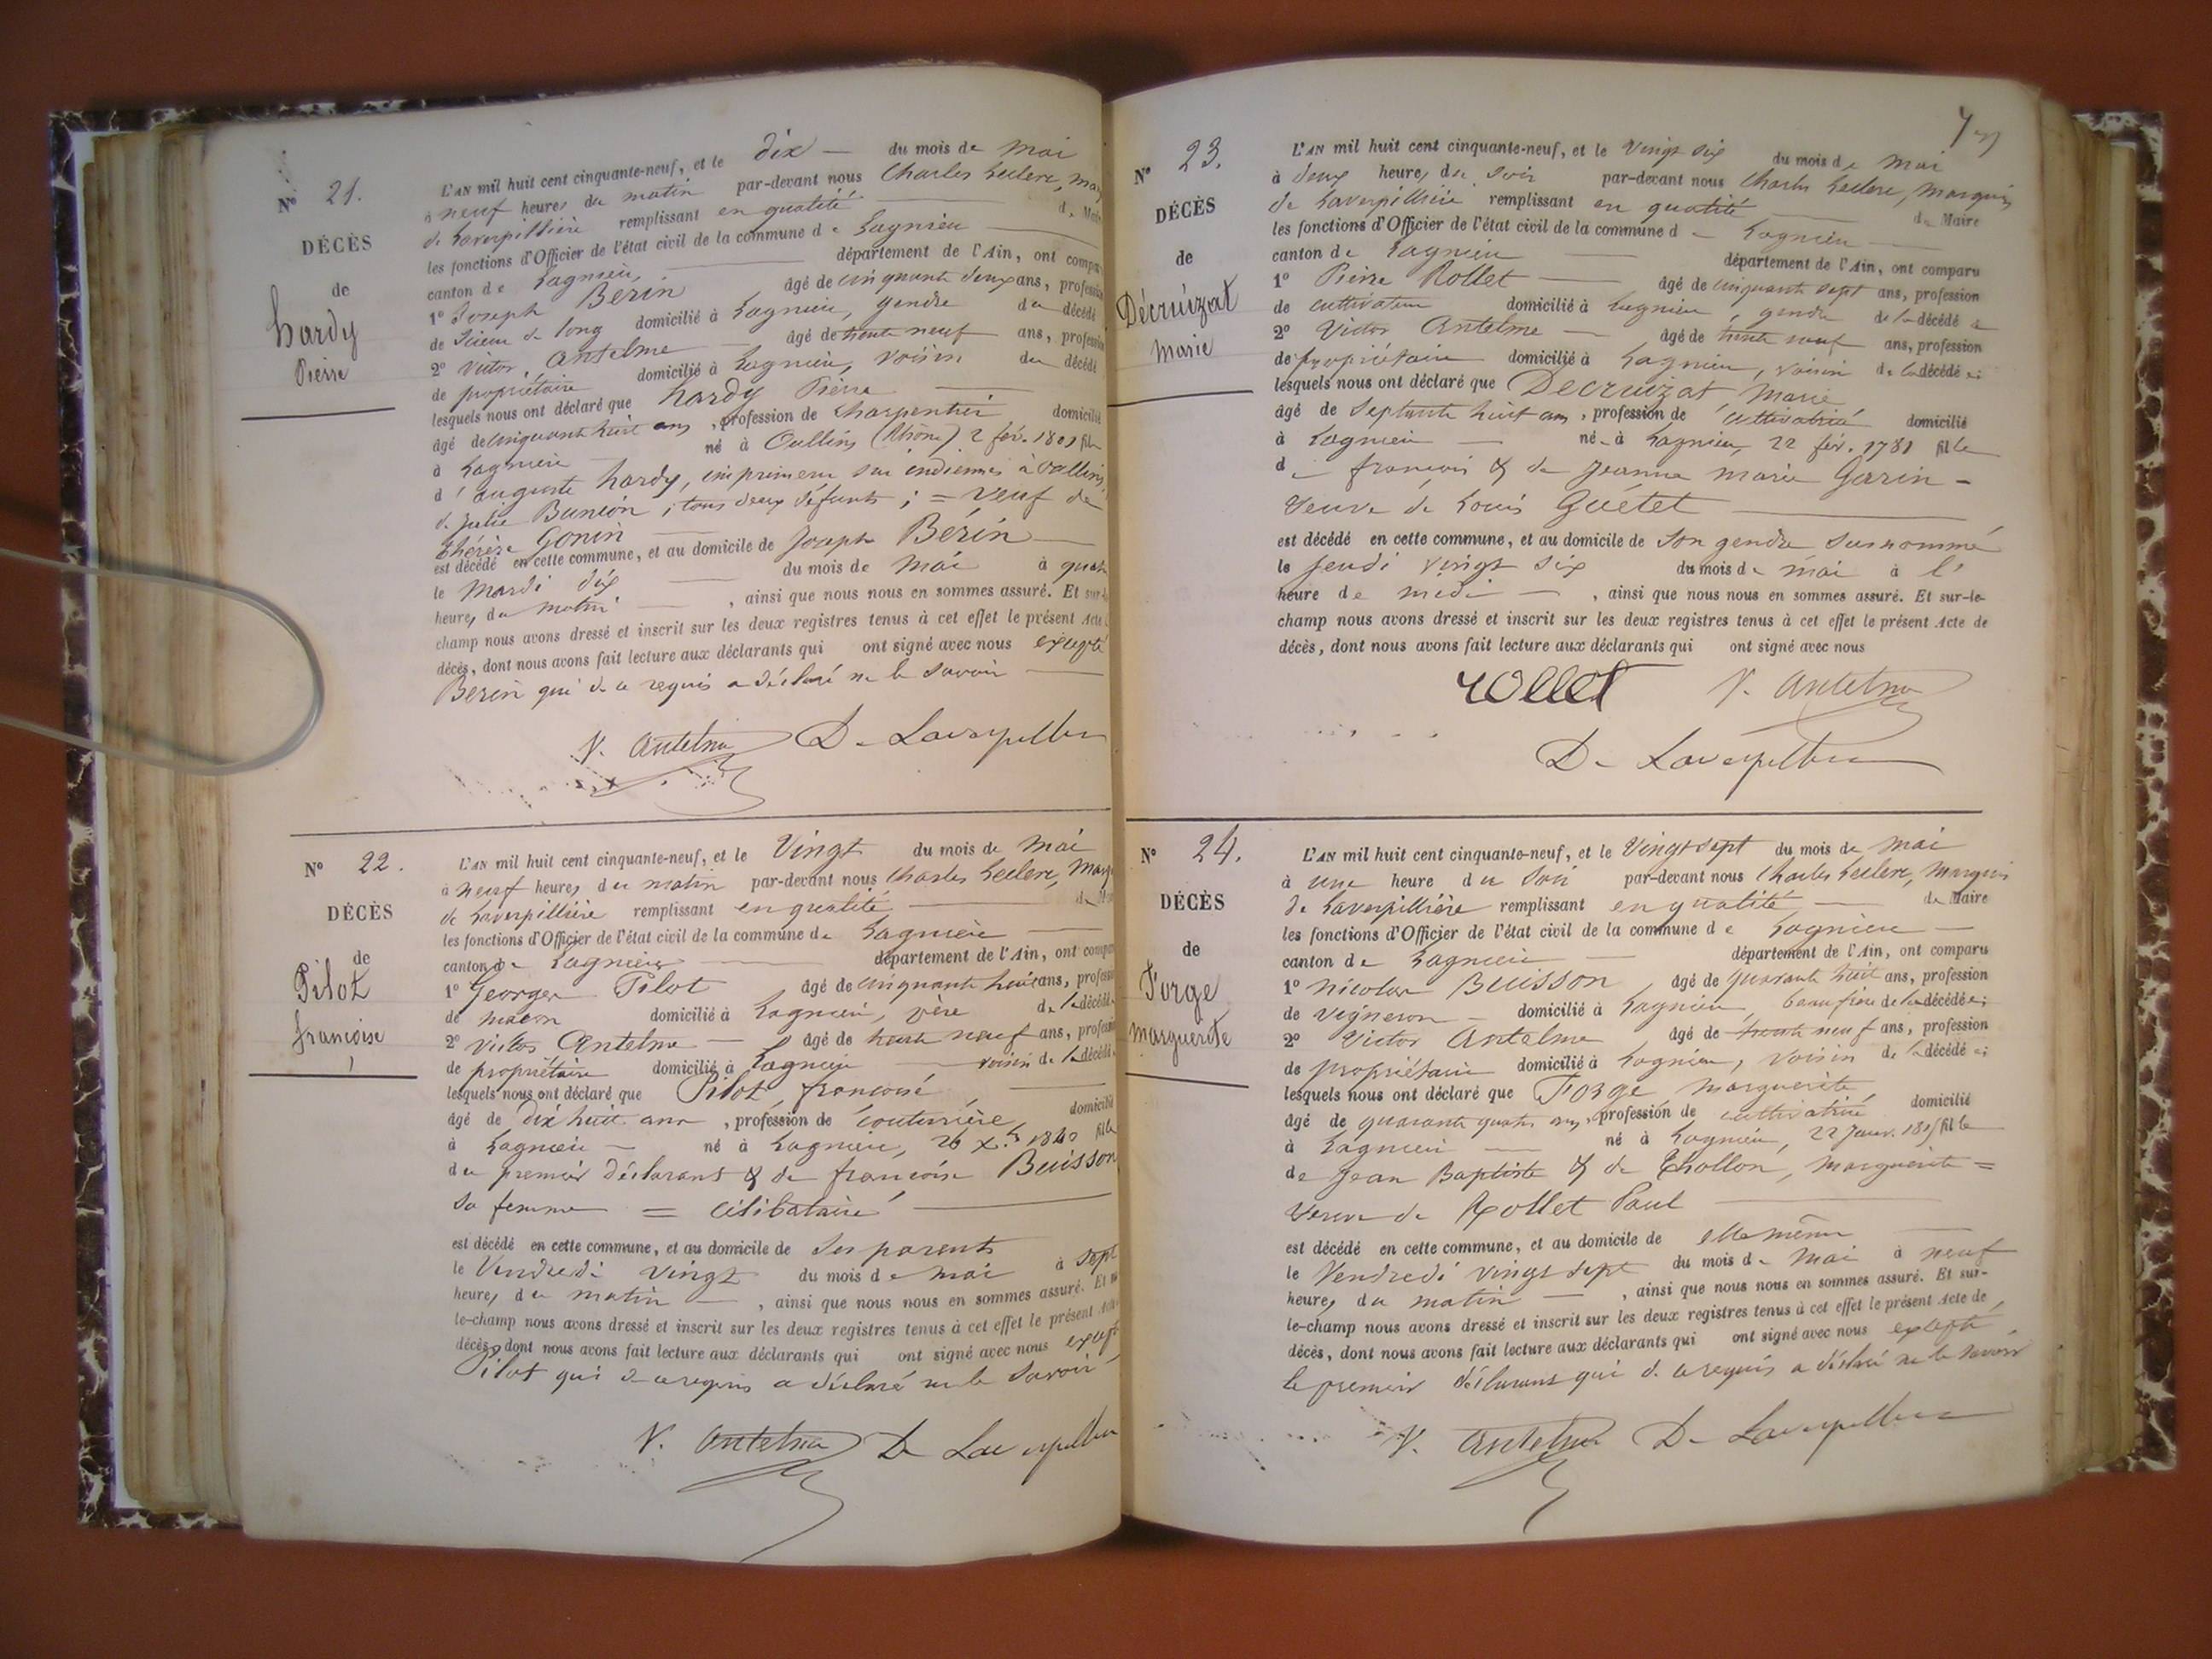 N° 21.
DÉCÈS
de
hardy
Pierre
L'AN mil huit cent cinquante-neuf, et le dix — du mois de mai
à neuf heures du matin par-devant nous Charles Leclerc, mar
de Laverpillière remplissant en qualité de Maire
les fonctions d'Officier de l'état civil de la commune de Lagnieu
canton de Lagnieu, département de l'Ain, ont compa
1° Joseph Berin âgé de cinquante deux ans, profession
de Scieur de long domicilié à Lagnieu, gendre du décédé
2° Victor Antelme âgé de trente neuf ans, profession
de propriétaire domicilié à Lagnieu, voisin du décédé
lesquels nous ont déclaré que hardy Pierre
âgé de cinquante huit ans, profession de charpentier domicilié
à Lagnieu né à Oullins (Rhône) 2 fév. 1801 fils
d'auguste hardy, imprimeur sur indiennes à oullins,
& Julie Bunion, tous deux défunts ; = veuf de
thérèse Gonin
est décédé en cette commune, et au domicile de Joseph Bérin
le mardi dix du mois de mai à quat
heures du matin, ainsi que nous nous en sommes assuré. Et sur-le
champ nous avons dressé et inscrit sur les deux registres tenus à cet effet le présent Acte
décès, dont nous avons fait lecture aux déclarants qui ont signé avec nous excepté
Berin qui de ce requis a déclaré ne le savoir
V. Antelme De Laverpillière
N° 22.
DÉCÈS
de
Pilot
françoise
L'AN mil huit cent cinquante-neuf, et le Vingt du mois de mai
à neuf heures du matin par-devant nous Charles Leclerc, Marq
de Laverpillière remplissant en qualité
les fonctions d'Officier de l'état civil de la commune de Lagnieu
canton de Lagnieu département de l'Ain, ont compa
1° Georges Pilot âgé de cinquante huit ans, profess
de maçon domicilié à Lagnieu, père de la décédée
2° Victor Antelme — âgé de trente neuf ans, profess
de propriétaire domicilié à Lagnieu voisin de la décédée
lesquels nous ont déclaré que Pilot françoise
âgé de dix huit ans, profession de couturière domicilié
à Lagnieu — né à Lagnieu, 26 X.bre 1840 fille
du premier déclarant & de françoise Buisson
sa femme = célibataire
est décédé en cette commune, et au domicile de ses parents
le Vendredi vingt du mois de mai à sept
heures du matin —, ainsi que nous nous en sommes assuré. Et
le-champ nous avons dressé et inscrit sur les deux registres tenus à cet effet le présent Acte
décès, dont nous avons fait lecture aux déclarants qui ont signé avec nous except
Pilot qui de ce requis a déclaré ne le savoir
V. Antelme De Laverpillière
N° 23.
DÉCÈS
de
Décruizat
Marie
L'AN mil huit cent cinquante-neuf, et le Vingt six du mois de mai
à deux heures du soir par-devant nous Charles Leclerc, Marquis
de Laverpillière remplissant en qualité de Maire
les fonctions d'Officier de l'état civil de la commune de Lagnieu
canton de Lagnieu département de l'Ain, ont comparu
1° Pierre Rollet âgé de cinquante sept ans, profession
de cultivateur domicilié à Lagnieu, gendre de la décédée
2° Victor Antelme âgé de trente neuf ans, profession
de propriétaire domicilié à Lagnieu, voisin de la décédée ;
lesquels nous ont déclaré que Decruizat, Marie
âgé de Septante huit ans, profession de cultivatrice domicilié
à Lagnieu — né à Lagnieu, 22 fév. 1781 fille
de françois & de Jeanne marie Garin -
Veuve de Louis Guétet
est décédé en cette commune, et au domicile de son gendre susnommé
le Jeudi vingt six du mois de mai à l'
heure de midi —, ainsi que nous nous en sommes assuré. Et sur-le-
champ nous avons dressé et inscrit sur les deux registres tenus à cet effet le présent Acte de
décès, dont nous avons fait lecture aux déclarants qui ont signé avec nous
rollet V. Antelme
De Laverpillière
N° 24.
DÉCÈS
de
Forge
Marguerite
L'AN mil huit cent cinquante-neuf, et le Vingt sept du mois de mai
à une heure du soir par-devant nous Charles Leclerc, Marquis
de Laverpillière remplissant en qualité — de Maire
les fonctions d'Officier de l'état civil de la commune de Lagnieu
canton de Lagnieu — département de l'Ain, ont comparu
1° Nicolas Buisson âgé de quarante huit ans, profession
de vigneron — domicilié à Lagnieu, beau frère de la décédée ;
2° Victor Antelme âgé de trente neuf ans, profession
de propriétaire domicilié à Lagnieu, voisin de la décédée ;
lesquels nous ont déclaré que Forge marguerite
âgé de quarante quatre ans, profession de cultivatrice domicilié
à Lagnieu — né à Lagnieu, 22 Janv. 1815 fille
de Jean Baptiste & de Chollon, Marguerite =
Veuve de Rollet Paul
est décédé en cette commune, et au domicile de elle même
le Vendredi vingt sept du mois de mai à neuf
heures du matin —, ainsi que nous nous en sommes assuré. Et sur-
le-champ nous avons dressé et inscrit sur les deux registres tenus à cet effet le présent Acte de
décès, dont nous avons fait lecture aux déclarants qui ont signé avec nous excepté
le premier déclarant qui de ce requis a déclaré ne le savoir
V. Antelme De Laverpillière